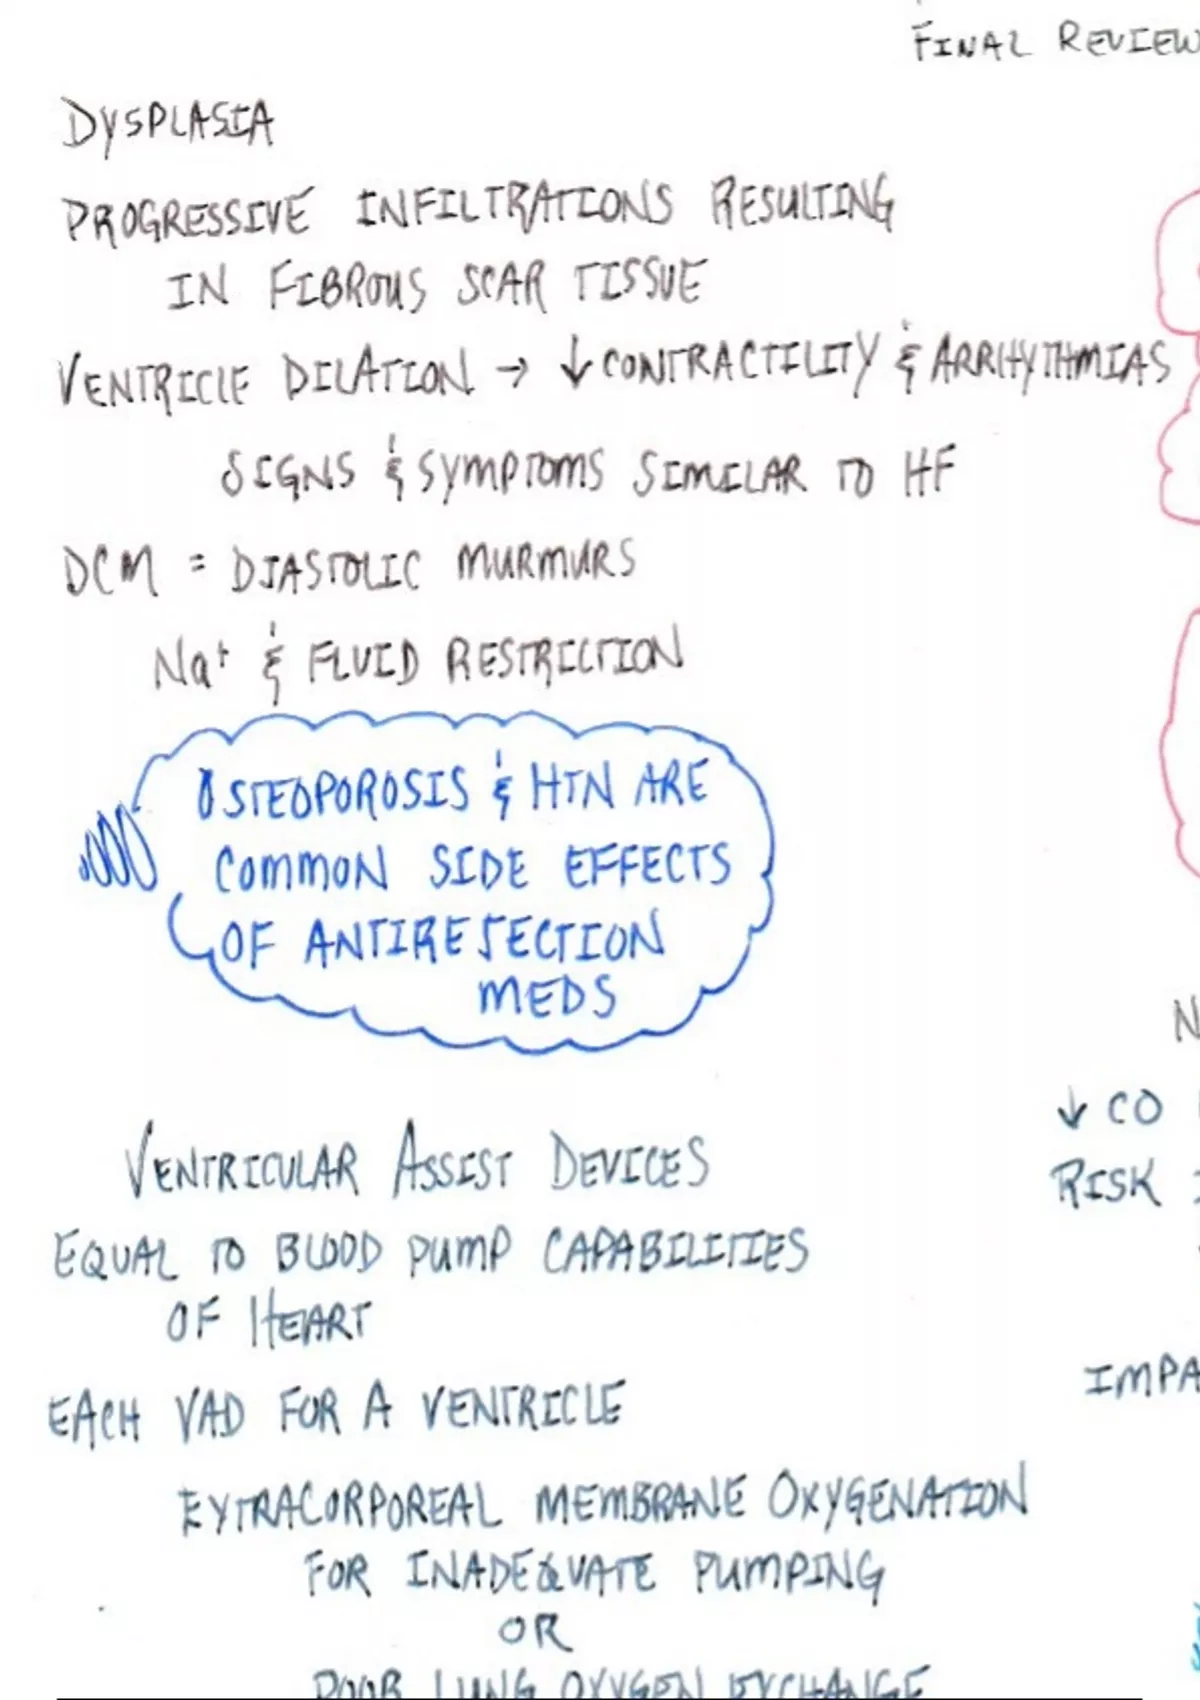 FINAL REVIEW
DYSPLASIA
PROGRESSIVE INFILTRATIONS RESULTING
IN FIBROUS SCAR TISSUE
VENTRICLE DILATION → ↓ CONTRACTILITY & ARRHYTHMIAS
SIGNS & SYMPTOMS SIMILAR TO HF
DCM = DIASTOLIC MURMURS
Na+ & FLUID RESTRICTION
OSTEOPOROSIS & HTN ARE
COMMON SIDE EFFECTS
OF ANTIREJECTION
MEDS
VENTRICULAR ASSIST DEVICES
EQUAL TO BLOOD PUMP CAPABILITIES
OF HEART
EACH VAD FOR A VENTRICLE
EXTRACORPOREAL MEMBRANE OXYGENATION
FOR INADEQUATE PUMPING
OR
POOR LUNG OXYGEN EXCHANGE
N
↓ CO
RISK
IMPA